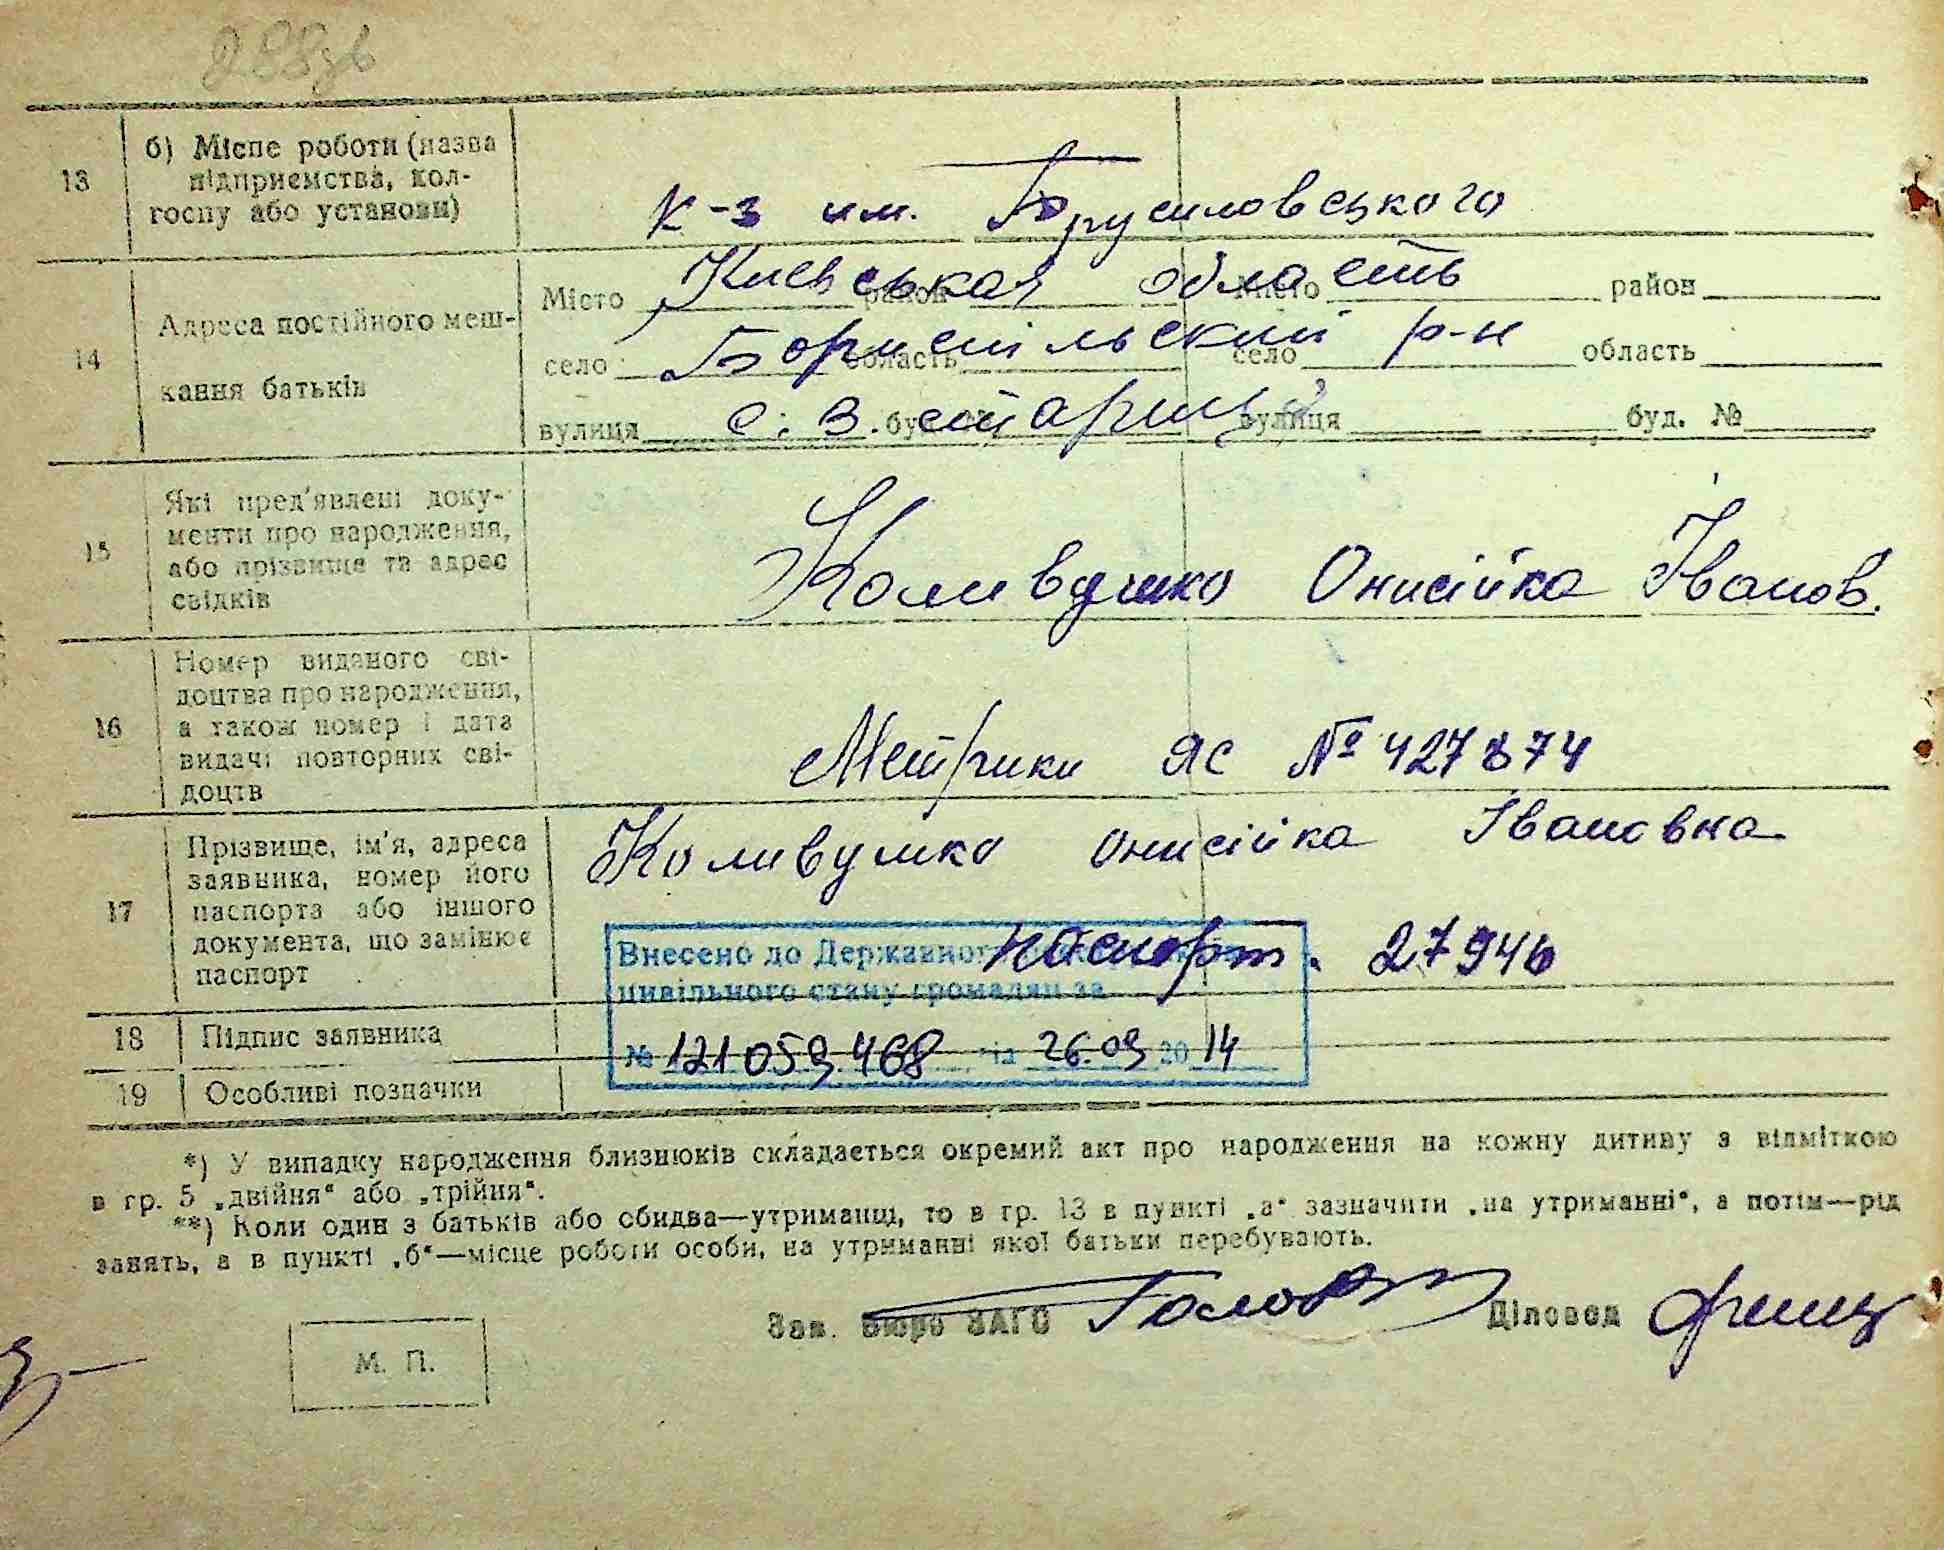 13
б) Місце роботи (назва
підприємства, кол-
госпу або установи)
к-з им. Брусиловського
14
Адреса постійного меш-
кання батьків
Місто район Місто район
Киевськая область
село область село область
Бориспільский р-н
вулиця буд. вулиця буд. №
с. В. Стариця
15
Які пред'явлені доку-
менти про народження,
або прізвище та адрес
свідків
Коливушко Онисійка Іванов.
16
Номер виданого сві-
доцтва про народження,
а також номер і дата
видачі повторних сві-
доцтв
Метрики ЯС № 427874
17
Прізвище, ім'я, адреса
заявника, номер його
паспорта або іншого
документа, що замінює
паспорт
Коливушко Онисійка Івановна
паспорт. 27946
Внесено до Державного
цивільного стану громадян за
№ 121059468 від 26.09 2014
18 Підпис заявника
19 Особливі позначки
*) У випадку народження близнюків складається окремий акт про народження на кожну дитину з відміткою
в гр. 5 „двійня“ або „трійня“.
**) Коли один з батьків або обидва—утриманці, то в гр. 13 в пункті „а“ зазначити „на утриманні“, а потім—рід
занять, а в пункті „б“—місце роботи особи, на утриманні якої батьки перебувають.
Зав. Бюро ЗАГС Діловод
М. П.